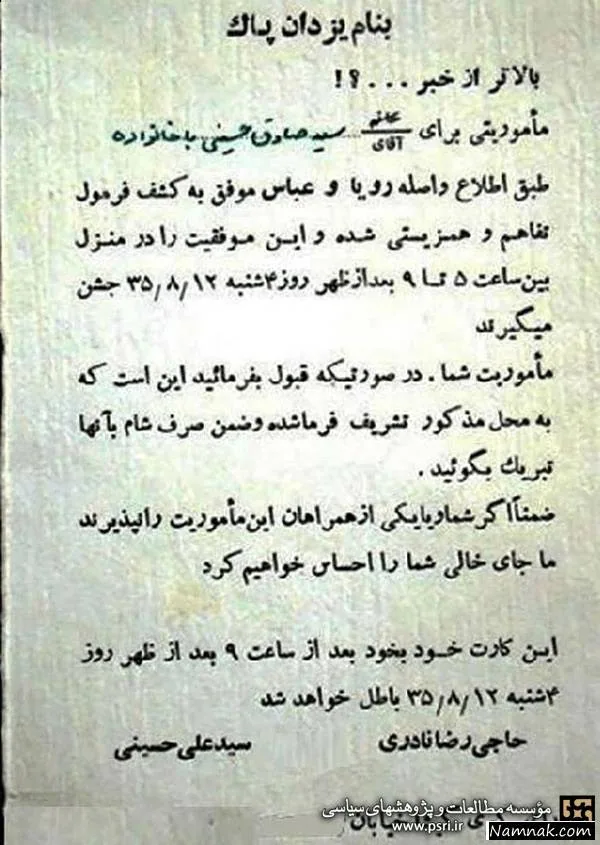 بنام یزدان پاك
بالاتر از خبر ...؟!
مأموریتی برای خانم آقای سید صادق حسینی با خانواده
طبق اطلاع واصله رویا و عباس موفق به کشف فرمول
تفاهم و همزیستی شده و این موفقیت را در منزل
بین ساعت ۵ تا ۹ بعدازظهر روز ۴شنبه ۳۵/۸/۱۲ جشن
میگیرند
مأموریت شما. در صورتیکه قبول بفرمائید این است که
به محل مذکور تشریف فرماشده وضمن صرف شام بآنها
تبریك بگوئید.
ضمناً اگر شما یا یکی از همراهان این مأموریت را نپذیرند
ما جای خالی شما را احساس خواهیم کرد
این کارت خود بخود بعد از ساعت ۹ بعد از ظهر روز
۴شنبه ۳۵/۸/۱۲ باطل خواهد شد
حاجی رضا نادری سید علی حسینی
مؤسسه مطالعات و پژوهشهای سیاسی
www.psri.ir
خیابان
Namnak.com